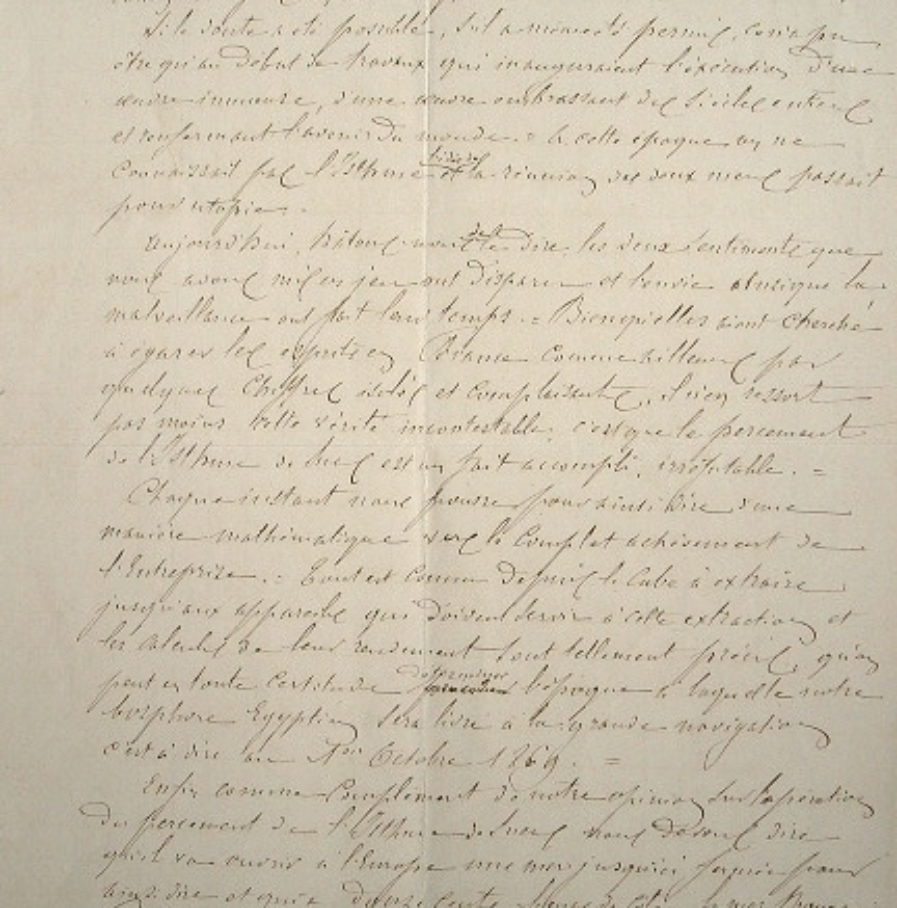 Si le doute a été possible, s'il a même été permis, ce n'a pu
être qu'au début de travaux qui inauguraient l'exécution d'une
œuvre immense, d'une œuvre embrassant des siècles entiers
et renfermant l'avenir du monde. = à cette époque on ne
connaissait pas l'Isthme et l'idée de la réunion des deux mers passait
pour utopie. -
Aujourd'hui, hâtons-nous de le dire, les deux sentiments que
nous avons mis en jeu ont disparu et l'envie ainsi que la
malveillance ont fait leur temps. = Bien qu'elles aient cherché
à égarer les esprits en France comme ailleurs par
quelques chiffres isolés et complaisants, il n'en ressort
pas moins cette vérité incontestable, c'est que le percement
de l'Isthme de Suez est un fait accompli, irréfutable. =
Chaque instant nous pousse pour ainsi dire d'une
manière mathématique vers le complet achèvement de
l'Entreprise. = Tout est connu depuis le cube à extraire
jusqu'aux appareils qui doivent servir à cette extraction et
les calculs de leur rendement sont tellement précis, qu'on
peut en toute certitude déterminer l'époque à laquelle notre
bosphore Egyptien sera livré à la grande navigation
c'est à dire au 1er Octobre 1869. =
Enfin comme complément de notre opinion sur l'opération
du percement de l'Isthme de Suez nous devons dire
qu'il va ouvrir à l'Europe une mer jusqu'ici fermée pour
ainsi dire et qui a douze cents lieues de côtes la mer Rouge